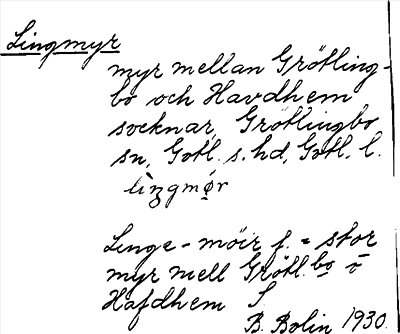 Lingmyr
myr mellan Grötling-
bo och Havdhem
socknar, Grötlingbo
sn, Gotl. s. hd, Gotl. l.
lìŋgmø̣r
Linge-möir f. = stor
myr mell Grötl.bo o
Hafdhem S
B. Bolin 1930.